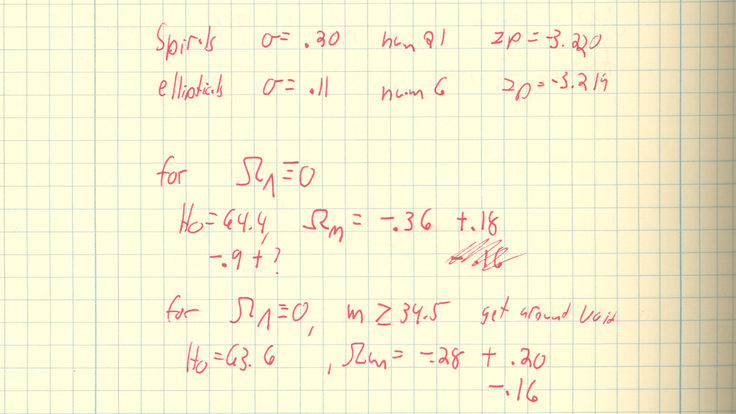 Spirals σ = .20 num 21 zp = -3.220
ellipticals σ = .11 num 6 zp = -3.219
for ΩΛ ≡ 0
H0 = 64.4, Ωm = -.36 +.18
-.9 + ?
for ΩΛ ≡ 0, m ≥ 34.5 get around void
H0 = 63.6 , Ωm = -.28 + .20
-.16